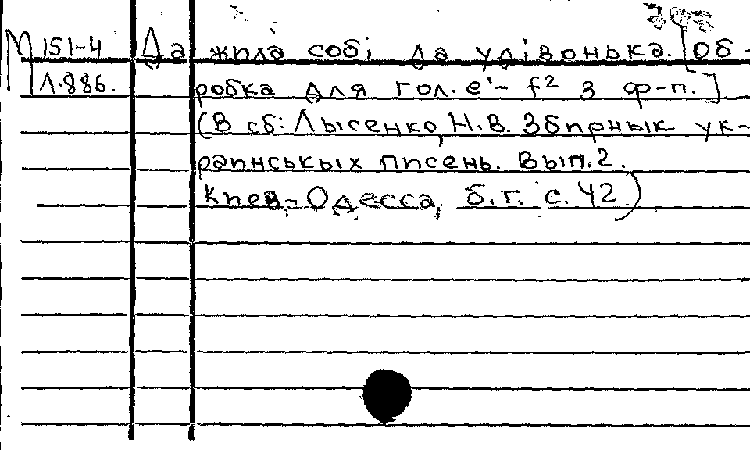 М 151-4 Да жила собі да удівонька. [Об-
Л.886. робка для гол. e¹- f² з ф-п.]
(В сб: Лысенко, Н.В. Збирнык ук-
раинськых писень. Вып.2.
Киев-Одесса, б.г. с.42)